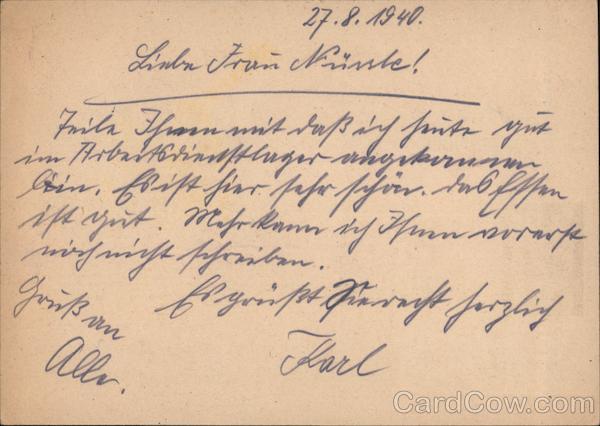 27.8.1940.
Liebe Frau Nünle!
Teile Ihnen mit daß ich heute gut
im Arbeitsdienstlager angekommen
bin. Es ist hier sehr schön. das Essen
ist gut. Mehr kann ich Ihnen vorerst
noch nicht schreiben.
Es grüßt Sie recht herzlich
Karl
Gruß an
Alle.
CardCow.com